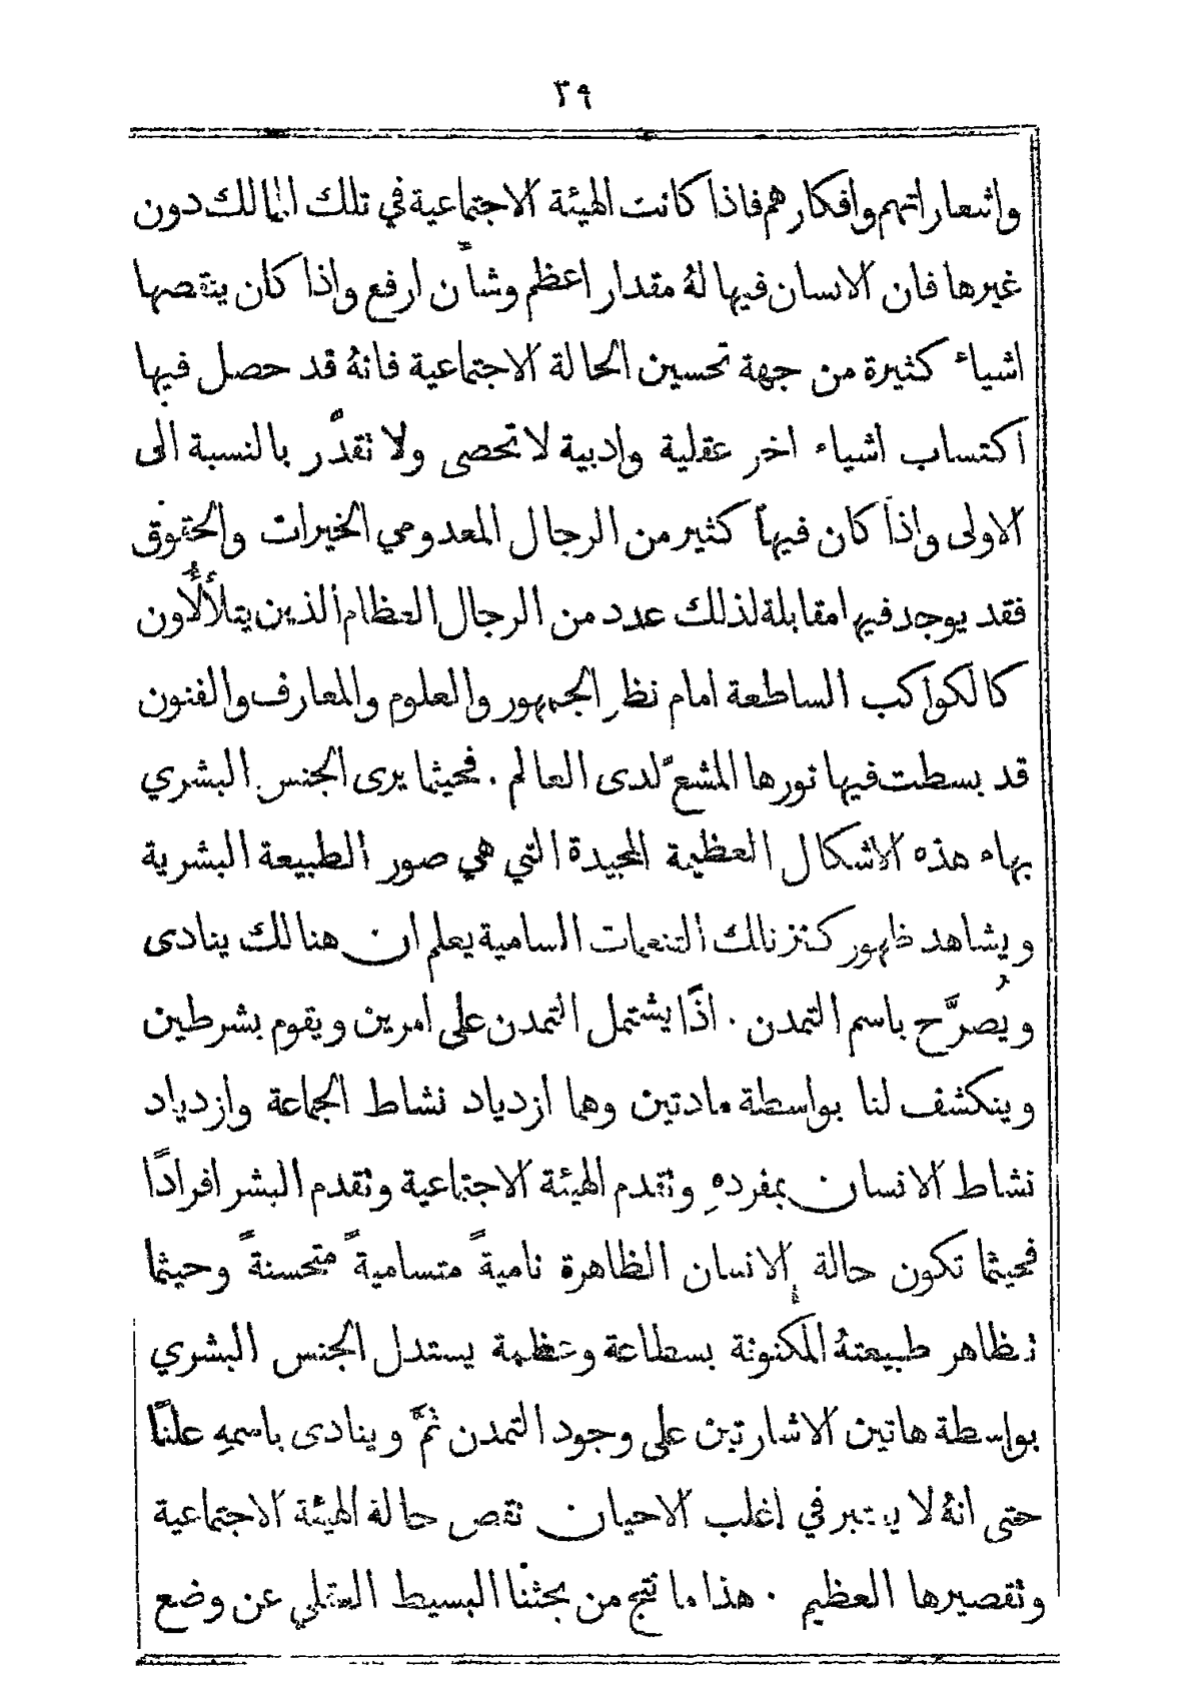 ٣٩
واشعاراتهم وافكارهم فاذا كانت الهيئة الاجتماعية في تلك الممالك دون
غيرها فان الانسان فيها لهُ مقدار اعظم وشأن ارفع واذا كان ينقصها
اشياء كثيرة من جهة تحسين الحالة الاجتماعية فانهُ قد حصل فيها
اكتساب اشياء اخر عقلية وادبية لا تحصى ولا تقدَّر بالنسبة الى
الاولى واذا كان فيها كثير من الرجال المعدومي الخيرات والحقوق
فقد يوجد فيها مقابلة لذلك عدد من الرجال العظام الذين يتلألأُون
كالكواكب الساطعة امام نظر الجمهور والعلوم والمعارف والفنون
قد بسطت فيها نورها المشعّ لدى العالم . فحيثما يرى الجنس البشري
بهاء هذه الاشكال العظيمة المجيدة التي هي صور الطبيعة البشرية
ويشاهد ظهور كنز تلك التنعمات السامية يعلم ان هنالك ينادى
ويُصرَّح باسم التمدن . اذًا يشتمل التمدن على امرين ويقوم بشرطين
وينكشف لنا بواسطة مادتين وهما ازدياد نشاط الجماعة وازدياد
نشاط الانسان بمفردهِ وتقدم الهيئة الاجتماعية وتقدم البشر افرادًا
فحيثما تكون حالة الانسان الظاهرة ناميةً متساميةً متحسنةً وحيثما
تظاهر طبيعتهُ المكنونة بسطاعة وعظمة يستدل الجنس البشري
بواسطة هاتين الاشارتين على وجود التمدن ثمَّ وينادى باسمهِ علنًا
حتى انهُ لا يعتبر في اغلب الاحيان نقص حالة الهيئة الاجتماعية
وتقصيرها العظيم . هذا ما نتج من بحثنا البسيط العقلي عن وضع